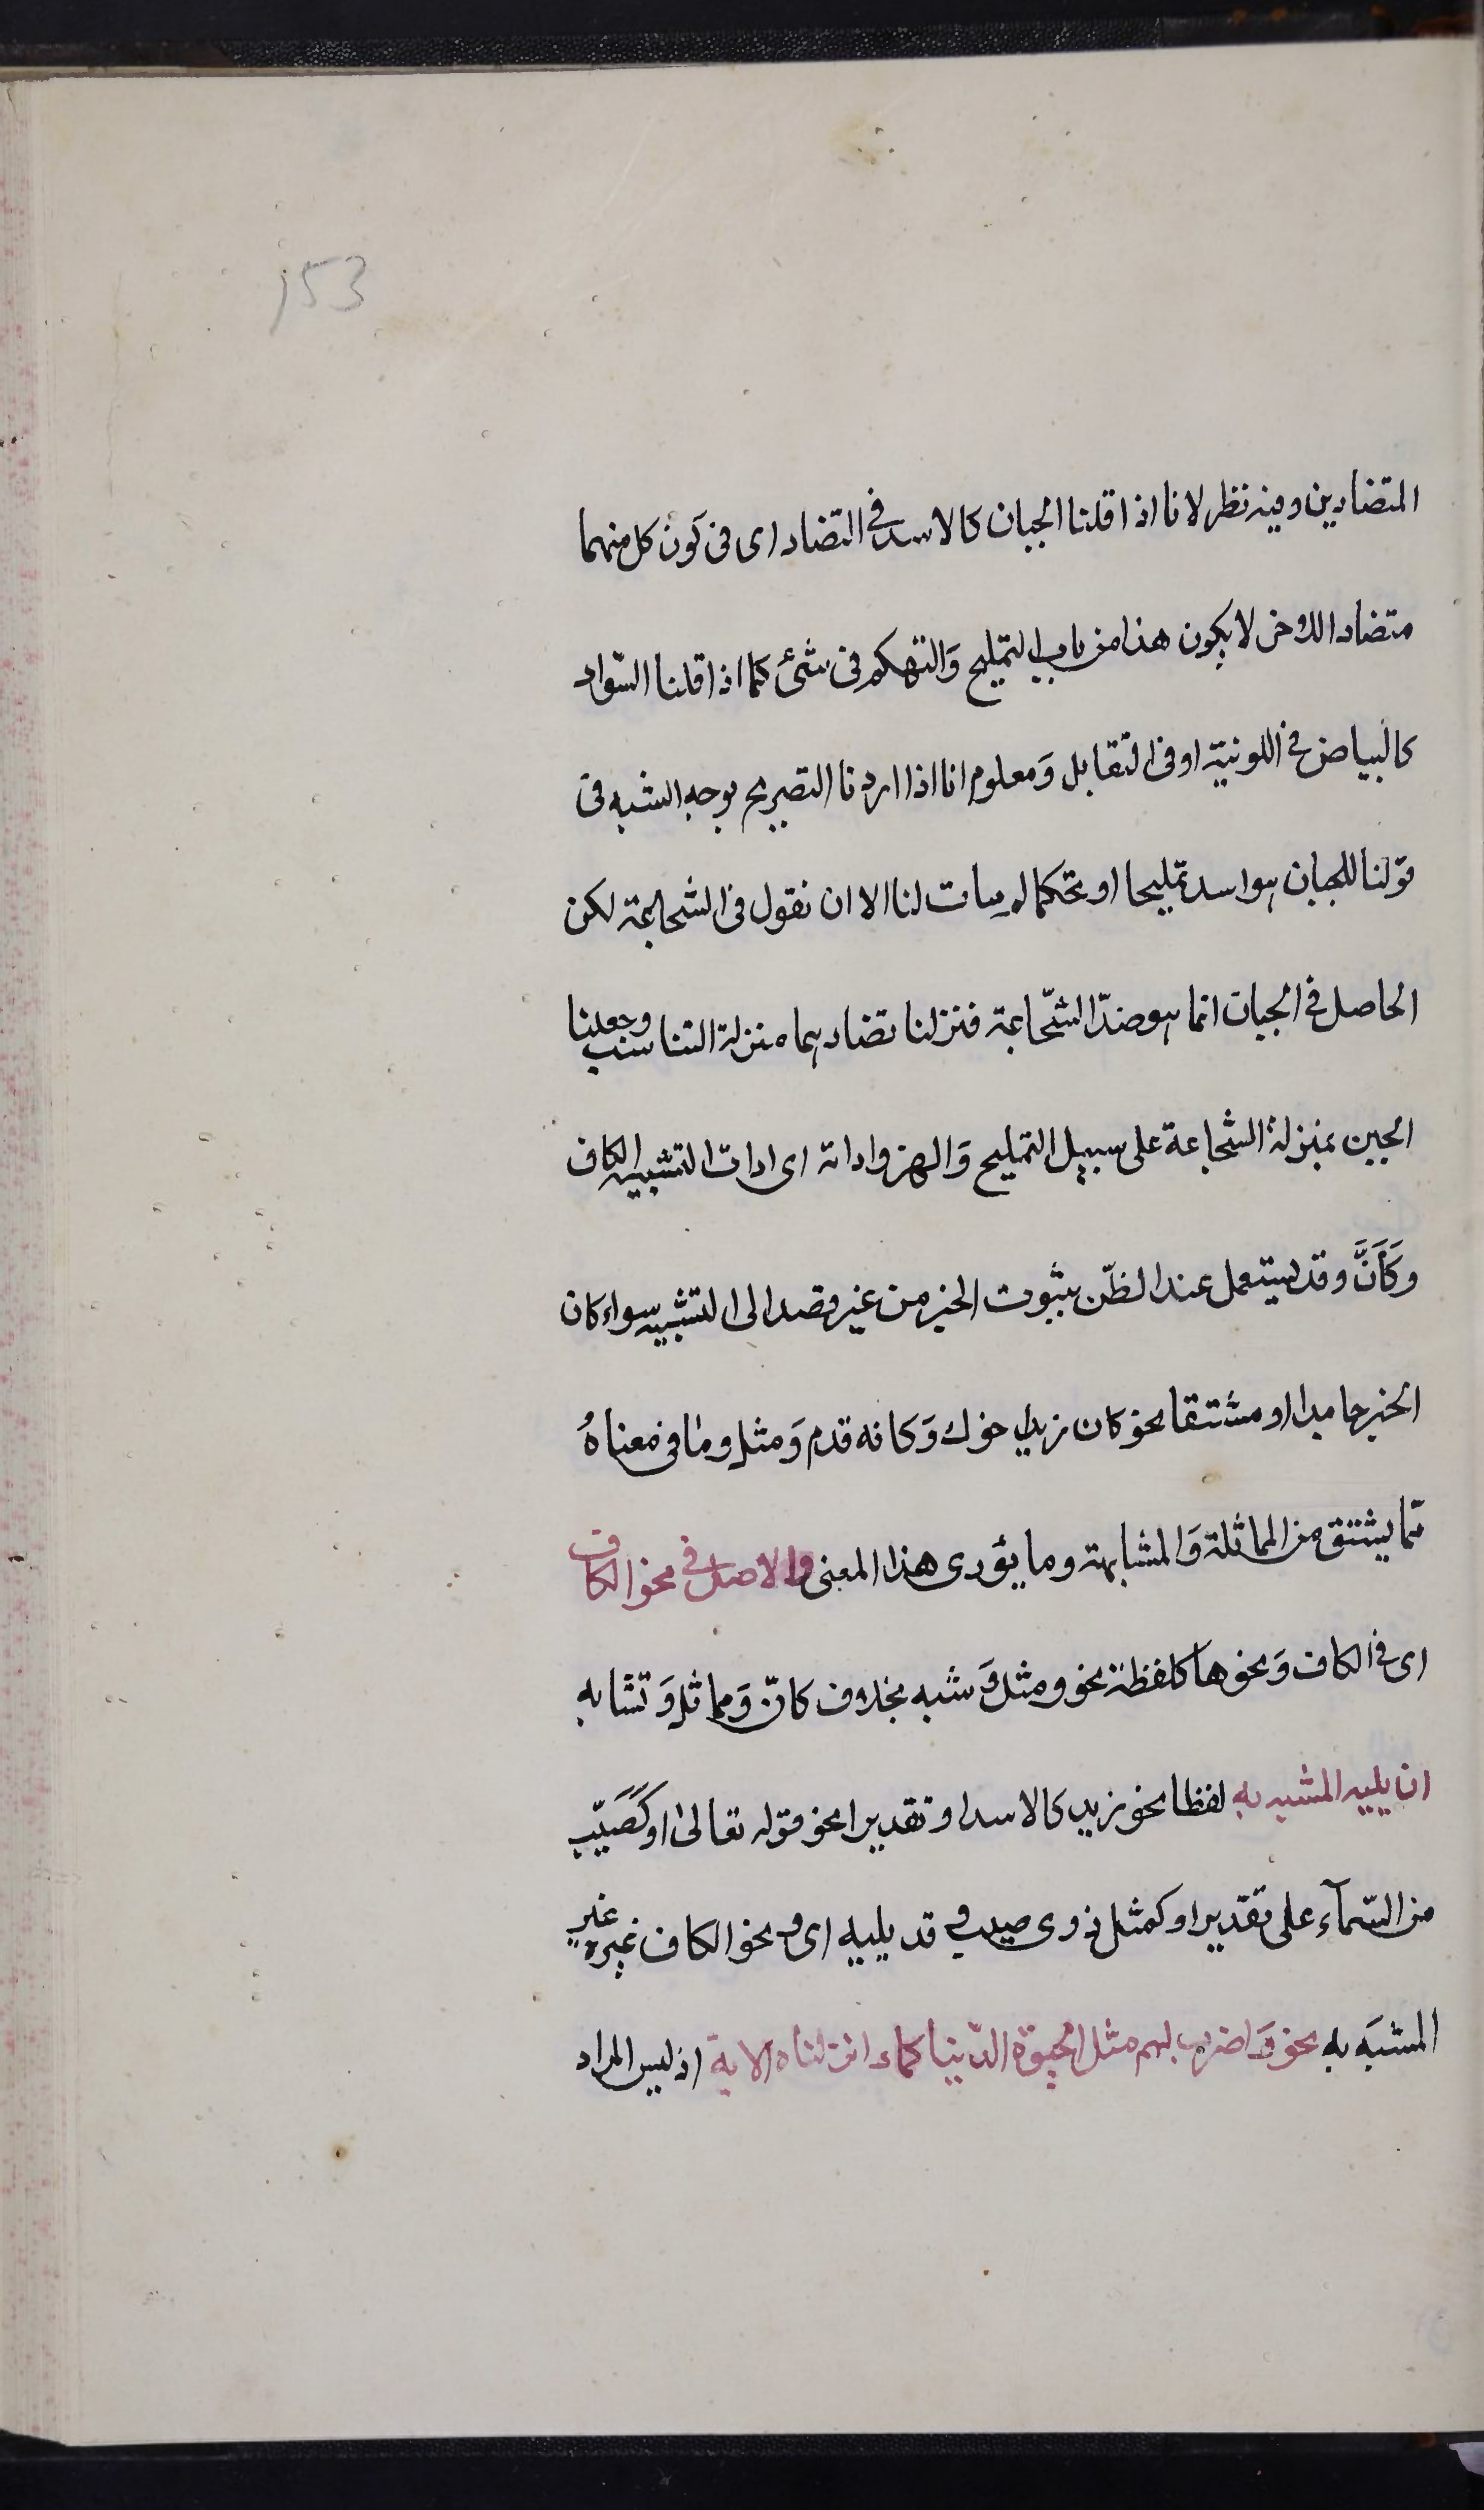 153
المتضادين وفيه نظر لانا اذا قلنا الجبان كالاسد فى التضاد اى فى كون كل منهما
متضاد اللآخر لا يكون هذا من باب التمليح وَالتهكم فى شئ كما اذا قلنا السّواد
كالبياض فى اللونيّة او فى التقابل وَمعلوم انا اذا اردنا التصريح بوجه الشبه فى
قولنا للجبان هو اسد تمليحا او تحكما لم يات لنا الا ان نقول فى الشجاعة لكن
الحاصل فى الجبان انما هو ضدّ الشّجاعة فنزلنا تضادهما منزلة التناسب وجعلنا
الجبن بمنزلة الشجاعة على سبيل التمليح وَالهزو اداته اى ادات التشبيه الكاف
وكَأَنَّ وقد يستعمل عند الظنّ بثبوت الخبر من غير قصد الى التشبيه سواء كان
الخبر جامدا او مشتقا نحو كان زيد اخوك وَكانه قدم وَمثل وما فى معناهُ
مما يشتق من المماثلة وَالمشابهة وما يؤدى هذا المعنى والاصل فى نحو الكاف
اى فى الكاف وَنحوها كلفظة نحو ومثل وَشبه بخلاف كانّ وَمماثل وَتشابه
ان يليه المشبه به لفظا نحو زيد كالاسد او تقديرا نحو قوله تعالىٰ اوكَصَيِّب
من السّمآء على تقدير او كمثل ذوى صيب وقد يليه اى نحو الكاف غيره غير
المشبَه به نحو وَاضرب لهم مثل الحيوة الدّنيا كماء انزلناه الاية اذ ليس المراد